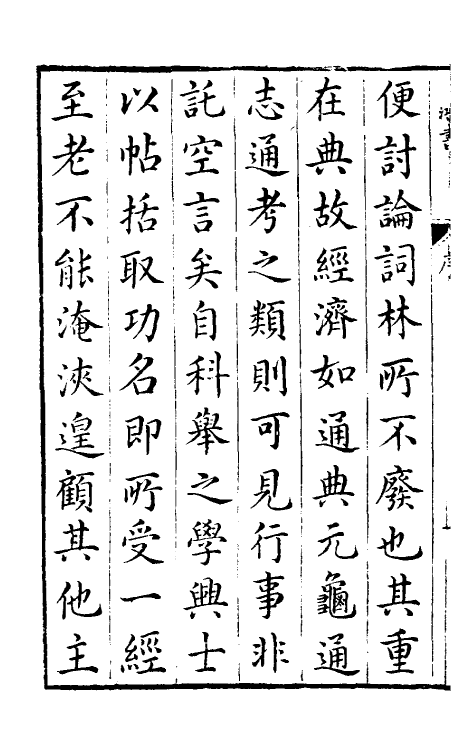 便討論詞林所不廢也其重
在典故經濟如通典元龜通
志通考之類則可見行事非
託空言矣自科舉之學興士
以帖括取功名即所受一經
至老不能淹浹遑顧其他主